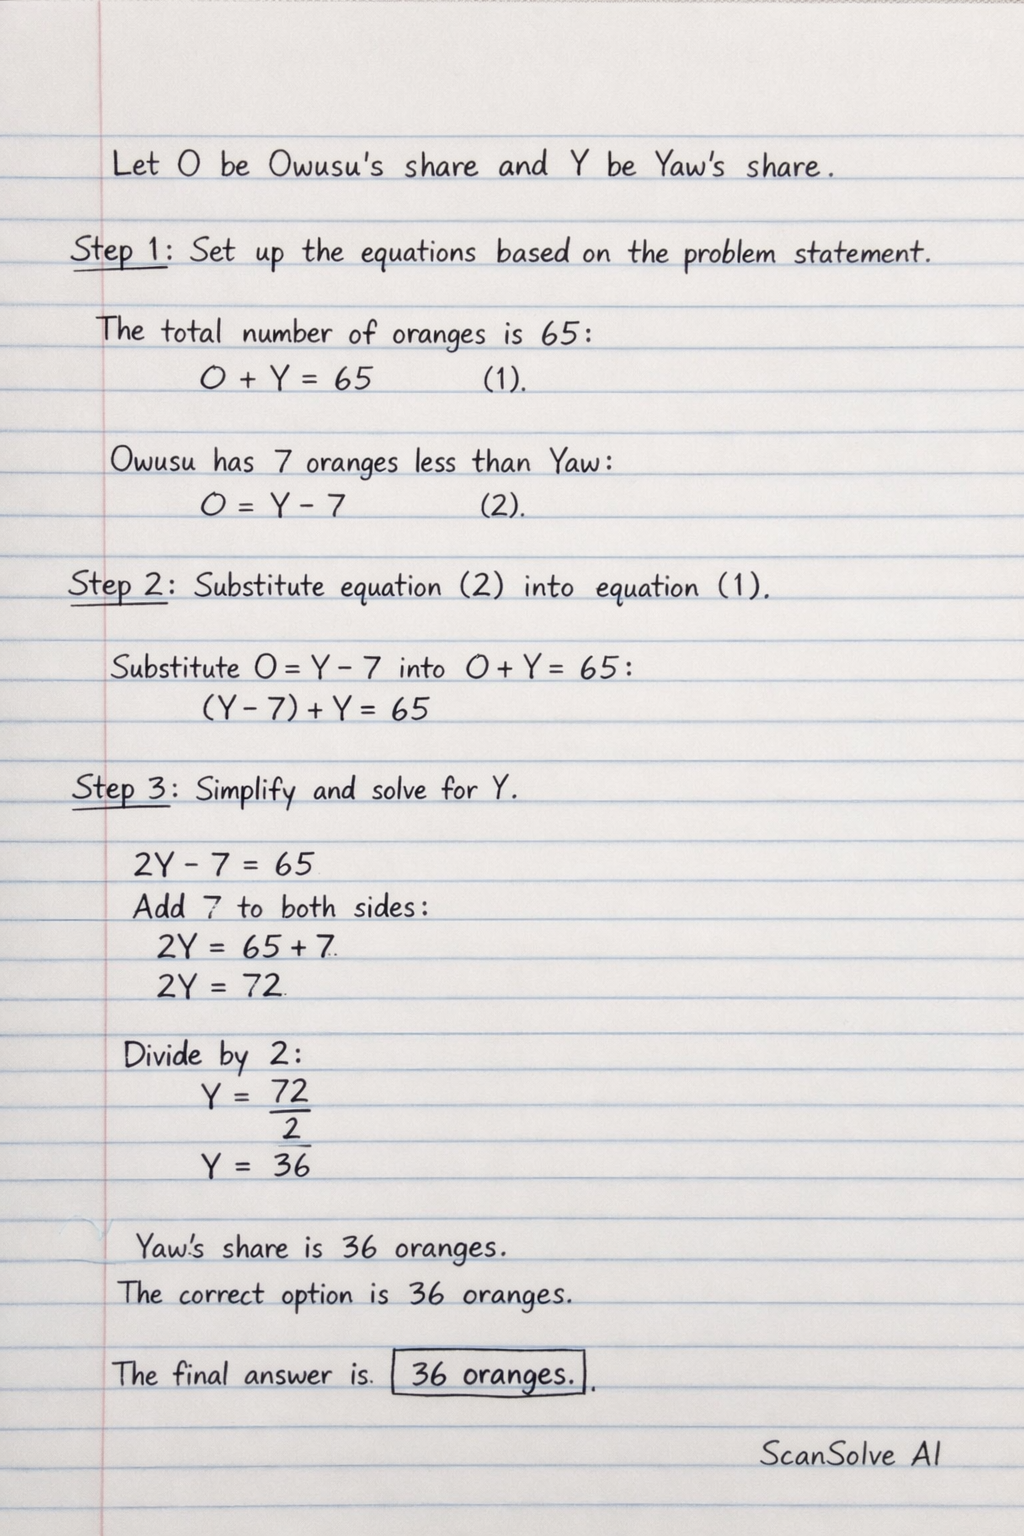 Let O be Owusu's share and Y be Yaw's share.
Step 1: Set up the equations based on the problem statement.
The total number of oranges is 65:
O + Y = 65 (1).
Owusu has 7 oranges less than Yaw:
O = Y - 7 (2).
Step 2: Substitute equation (2) into equation (1).
Substitute O = Y - 7 into O + Y = 65:
(Y - 7) + Y = 65
Step 3: Simplify and solve for Y.
2Y - 7 = 65
Add 7 to both sides:
2Y = 65 + 7.
2Y = 72.
Divide by 2:
Y = 72
2
Y = 36
Yaw's share is 36 oranges.
The correct option is 36 oranges.
The final answer is. 36 oranges..
ScanSolve AI